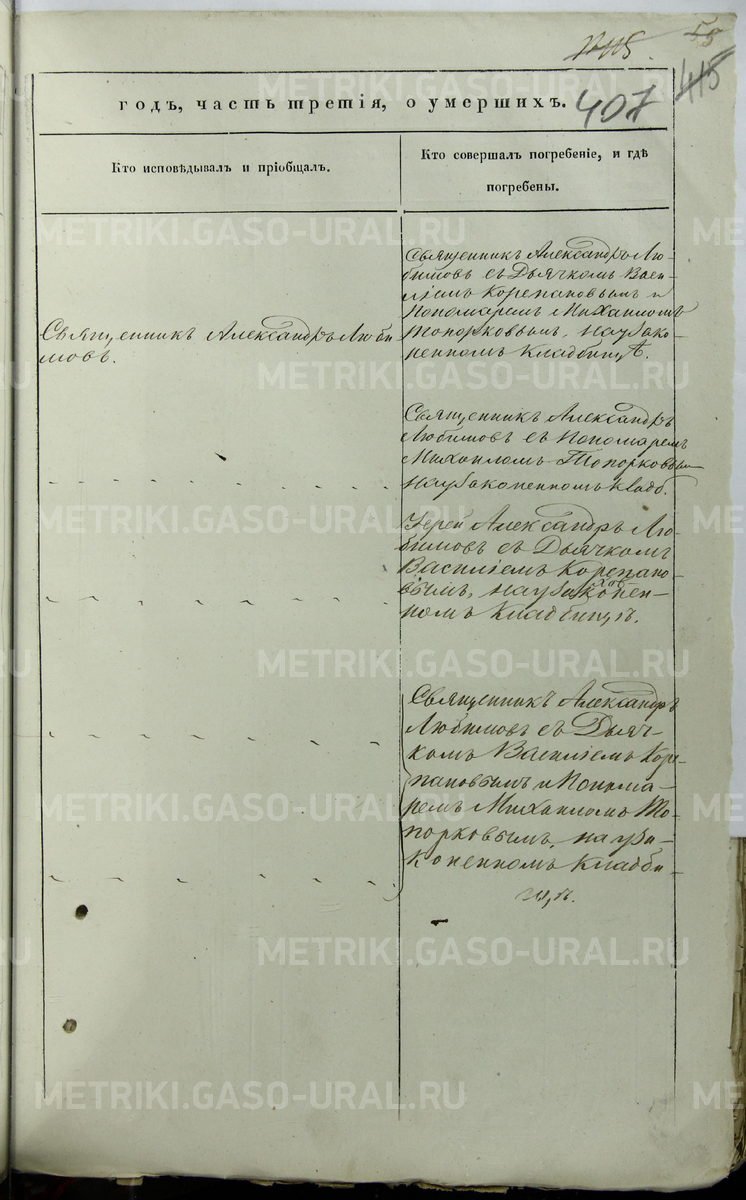 55
415
годъ, часть третія, о умершихъ. 407
Кто исповѣдывалъ и пріобщалъ.
Кто совершалъ погребеніе, и гдѣ
погребены.
Священникъ Александръ Люби
мовъ.
Священникъ Александръ Лю-
бимовъ съ Дьячкомъ Васи-
ліемъ Корепановымъ и
Пономаремъ Михаиломъ
Топорковымъ, на узако-
ненномъ кладбищѣ.
Священникъ Александръ
Любимовъ съ Пономаремъ
Михаиломъ Топорковым
на узаконенномъ кладб.
Іерей Александръ Лю-
бимовъ съ Дьячкомъ
Василіемъ Корепано-
вымъ, на узаконен-
номъ кладбищѣ.
Священникъ Александръ
Любимовъ съ Дьяч-
комъ Василіемъ Коре-
пановымъ и Понома-
ремъ Михаиломъ То-
порковымъ, на уза-
коненномъ кладби-
щѣ.
METRIKI.GASO-URAL.RU